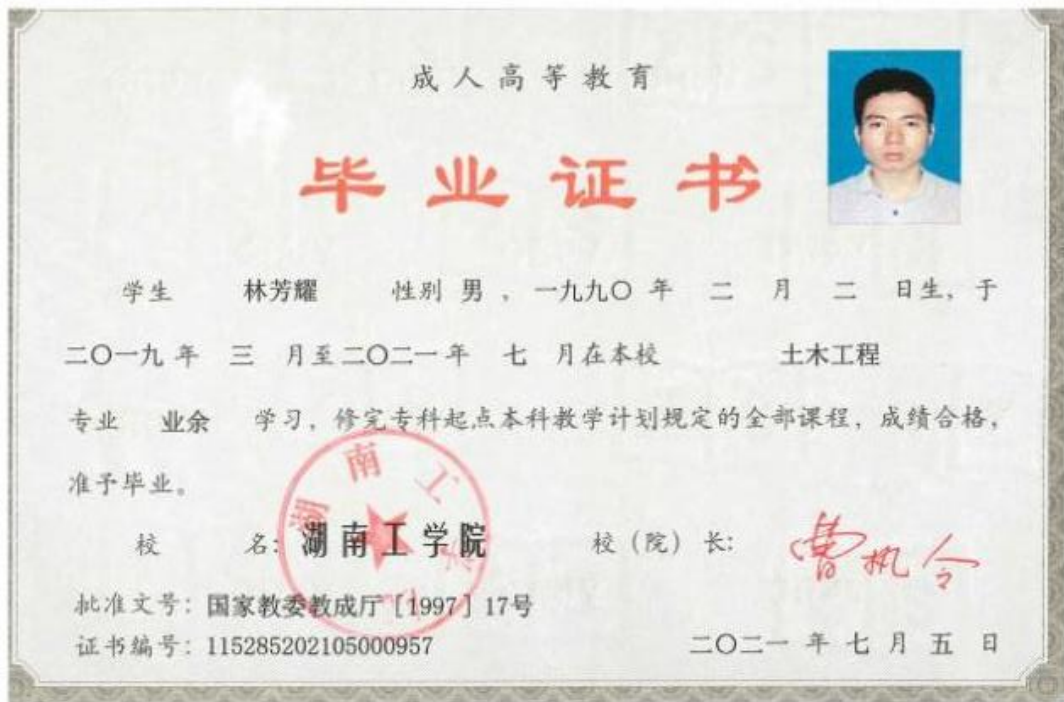 成人高等教育
毕业证书
学生 林芳耀 性别 男 ，一九九〇 年 二 月 二 日生，于
二〇一九 年 三 月至二〇二一 年 七 月在本校 土木工程
专业 业余 学习，修完专科起点本科教学计划规定的全部课程，成绩合格，
准予毕业。
湖南工学院
校 名：湖南工学院 校（院）长：曹执令
批准文号：国家教委教成厅［1997］17号
证书编号：115285202105000957 二〇二一 年 七 月 五 日